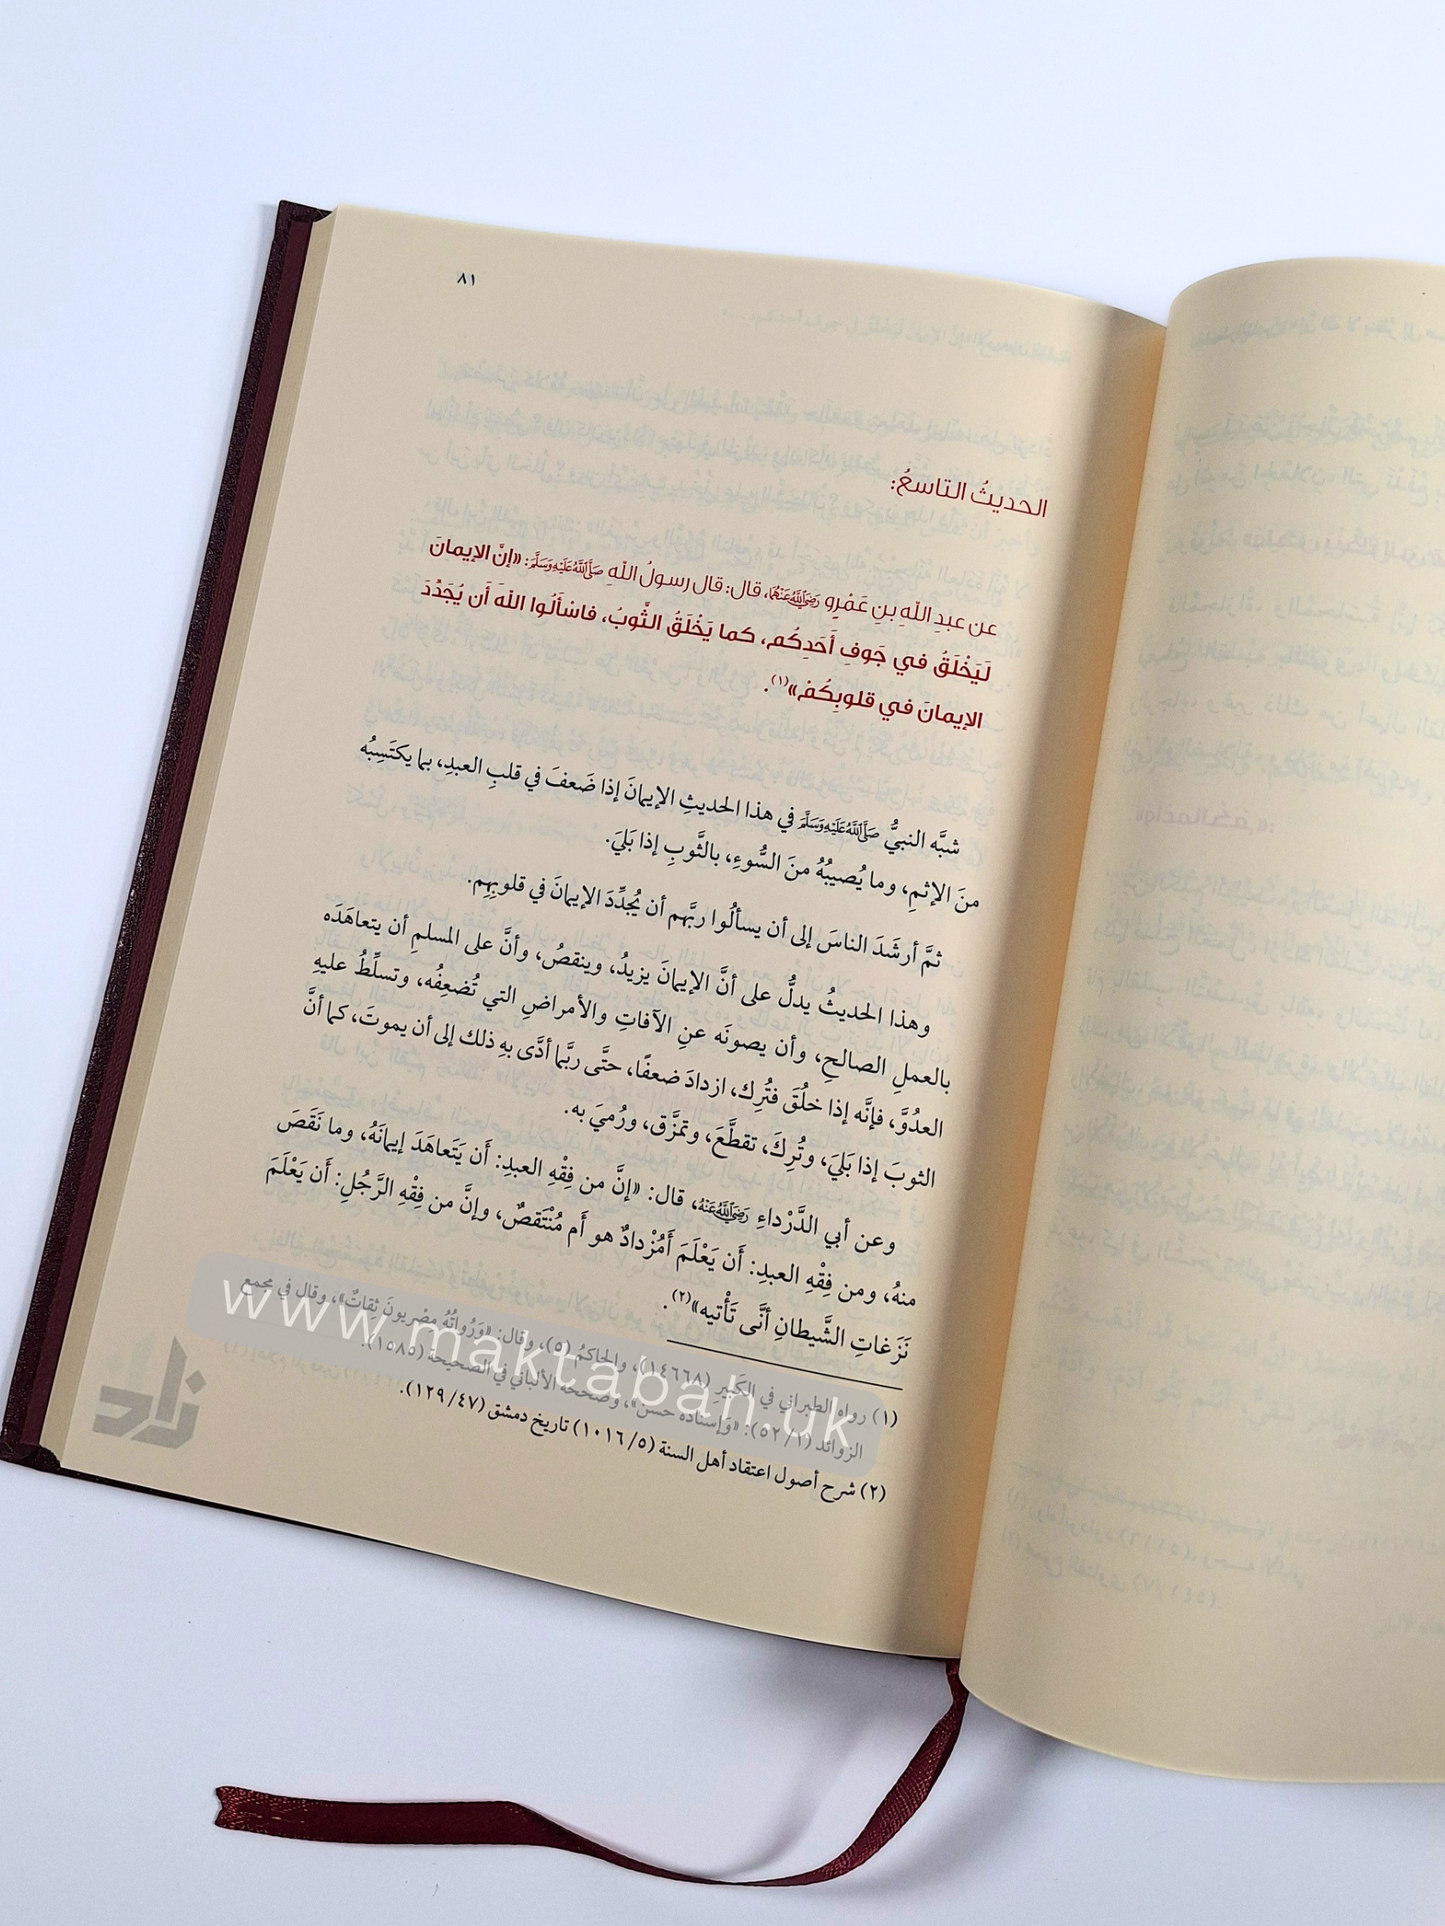 ٨١
الحديثُ التاسعُ:
عن عبدِ اللّهِ بنِ عَمْرٍو رَضِيَ اللَّهُ عَنْهُمَا، قال: قال رسولُ اللّهِ صَلَّى اللَّهُ عَلَيْهِ وَسَلَّمَ: «إنَّ الإيمانَ
لَيَخْلَقُ في جَوفِ أَحَدِكُم، كما يَخْلَقُ الثَّوبُ، فاسْأَلُوا اللّه أَن يُجَدِّدَ
الإيمانَ في قلوبِكُمْ»(١).
شبَّه النبيُّ صَلَّى اللَّهُ عَلَيْهِ وَسَلَّمَ في هذا الحديثِ الإيمانَ إذا ضَعفَ في قلبِ العبدِ، بما يكتَسِبُه
منَ الإثمِ، وما يُصيبُهُ منَ السُّوءِ، بالثَّوبِ إذا بَليَ.
ثمَّ أرشَدَ الناسَ إلى أن يسألُوا ربَّهم أن يُجدِّدَ الإيمانَ في قلوبِهِم.
وهذا الحديثُ يدلُّ على أنَّ الإيمانَ يزيدُ، وينقصُ، وأنَّ على المسلمِ أن يتعاهَدَه
بالعملِ الصالحِ، وأن يصونَه عنِ الآفاتِ والأمراضِ التي تُضعِفُه، وتسلِّطُ عليهِ
العدُوَّ، فإنَّه إذا خلُقَ فتُرِك، ازدادَ ضعفًا، حتَّى ربَّما أدَّى بهِ ذلك إلى أن يموتَ، كما أنَّ
الثوبَ إذا بَليَ، وتُرِكَ، تقطَّعَ، وتمزَّق، ورُميَ به.
وعن أبي الدَّرْداءِ رَضِيَ اللَّهُ عَنْهُ، قال: «إنَّ من فِقْهِ العبدِ: أَن يَتَعاهَدَ إيمانَهُ، وما نَقَصَ
منهُ، ومن فِقْهِ العبدِ: أَن يَعْلَمَ أَمُزْدادٌ هو أَم مُنْتَقصٌ، وإنَّ من فِقْهِ الرَّجُلِ: أَن يَعْلَمَ
نَزَغاتِ الشَّيطانِ أنَّى تَأْتيه»(٢).
(١) رواه الطبراني في الكَبيرِ (١٤٦٦٨)، والحاكمُ (٥)، وقال: «وَرُواتُهُ مصْريونَ ثِقاتٌ»، وقال في مجمع
الزوائد (٥٢/١): «وَإسْناده حسَنٌ»، وصححه الألباني في الصحيحة (١٥٨٥).
(٢) شرح أصول اعتقاد أهل السنة (١٠١٦/٥) تاريخ دمشق (١٢٩/٤٧).
www.maktabah.uk
زاد